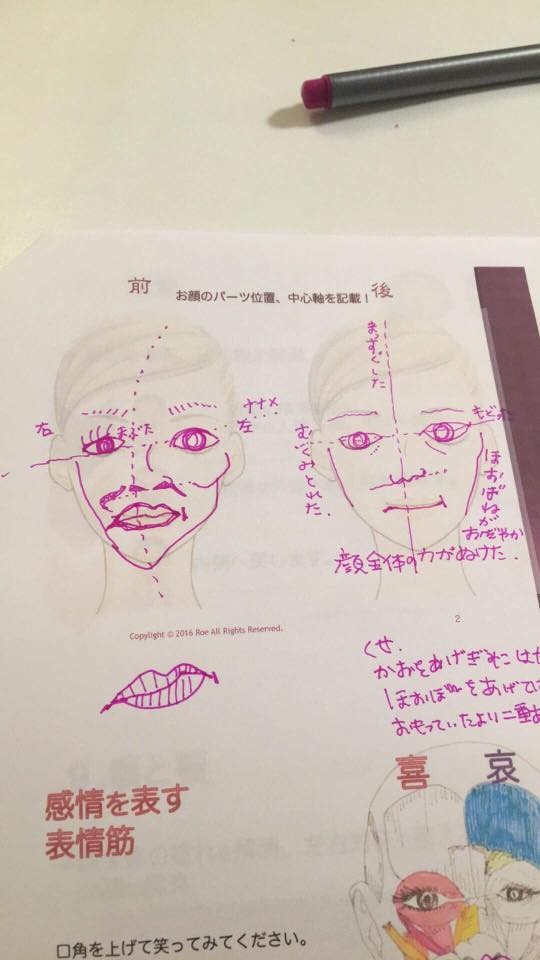 前
お顔のパーツ位置、中心軸を記載！
後
まっすぐした
右
まぶた
左
ナナメ
むくみとれた
もどった
ほおぼねが
おだやか
顔全体の力がぬけた
Copyright © 2016 Roe All Rights Reserved.
2
くせ.
かおをあげぎみに
ほおぼねをあげて
おもっていたより二重
感情を表す
表情筋
喜
哀
口角を上げて笑ってみてください。